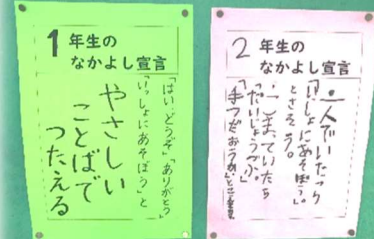 1年生の
なかよし宣言
「はい、どうぞ」「ありがとう」
「いっしょにあそぼう」と
やさしい
ことばで
つたえる
2年生の
なかよし宣言
・一人でいたら
「いっしょにあそぼう。」
とさそう。
・こまっていたら
「だいじょうぶ」